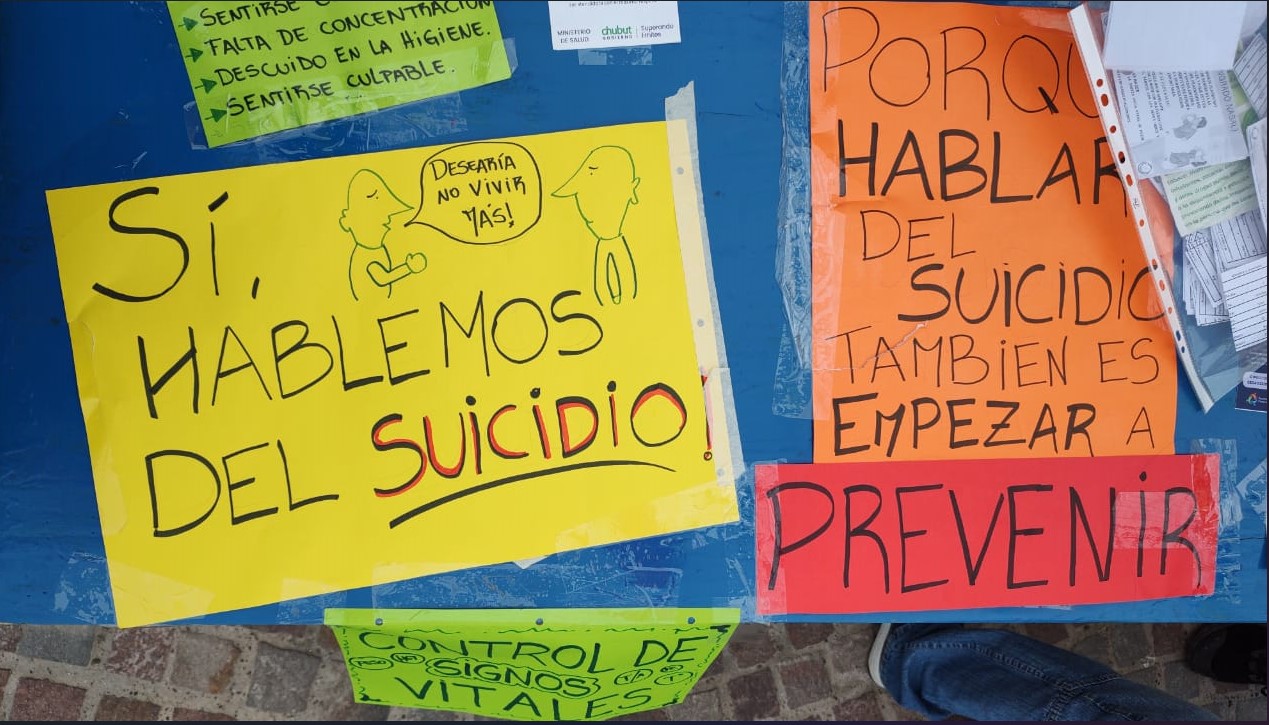 SENTIRSE
FALTA DE CONCENTRACIÓN
DESCUIDO EN LA HIGIENE.
SENTIRSE CULPABLE.
MINISTERIO
DE SALUD
chubut
GOBIERNO
Superando
límites
SÍ,
HABLEMOS
DEL SUICIDIO!
DESEARÍA
NO VIVIR
MÁS!
PORQU
HABLAR
DEL
SUICIDIO
TAMBIEN ES
EMPEZAR A
PREVENIR
CONTROL DE
SIGNOS
VITALES